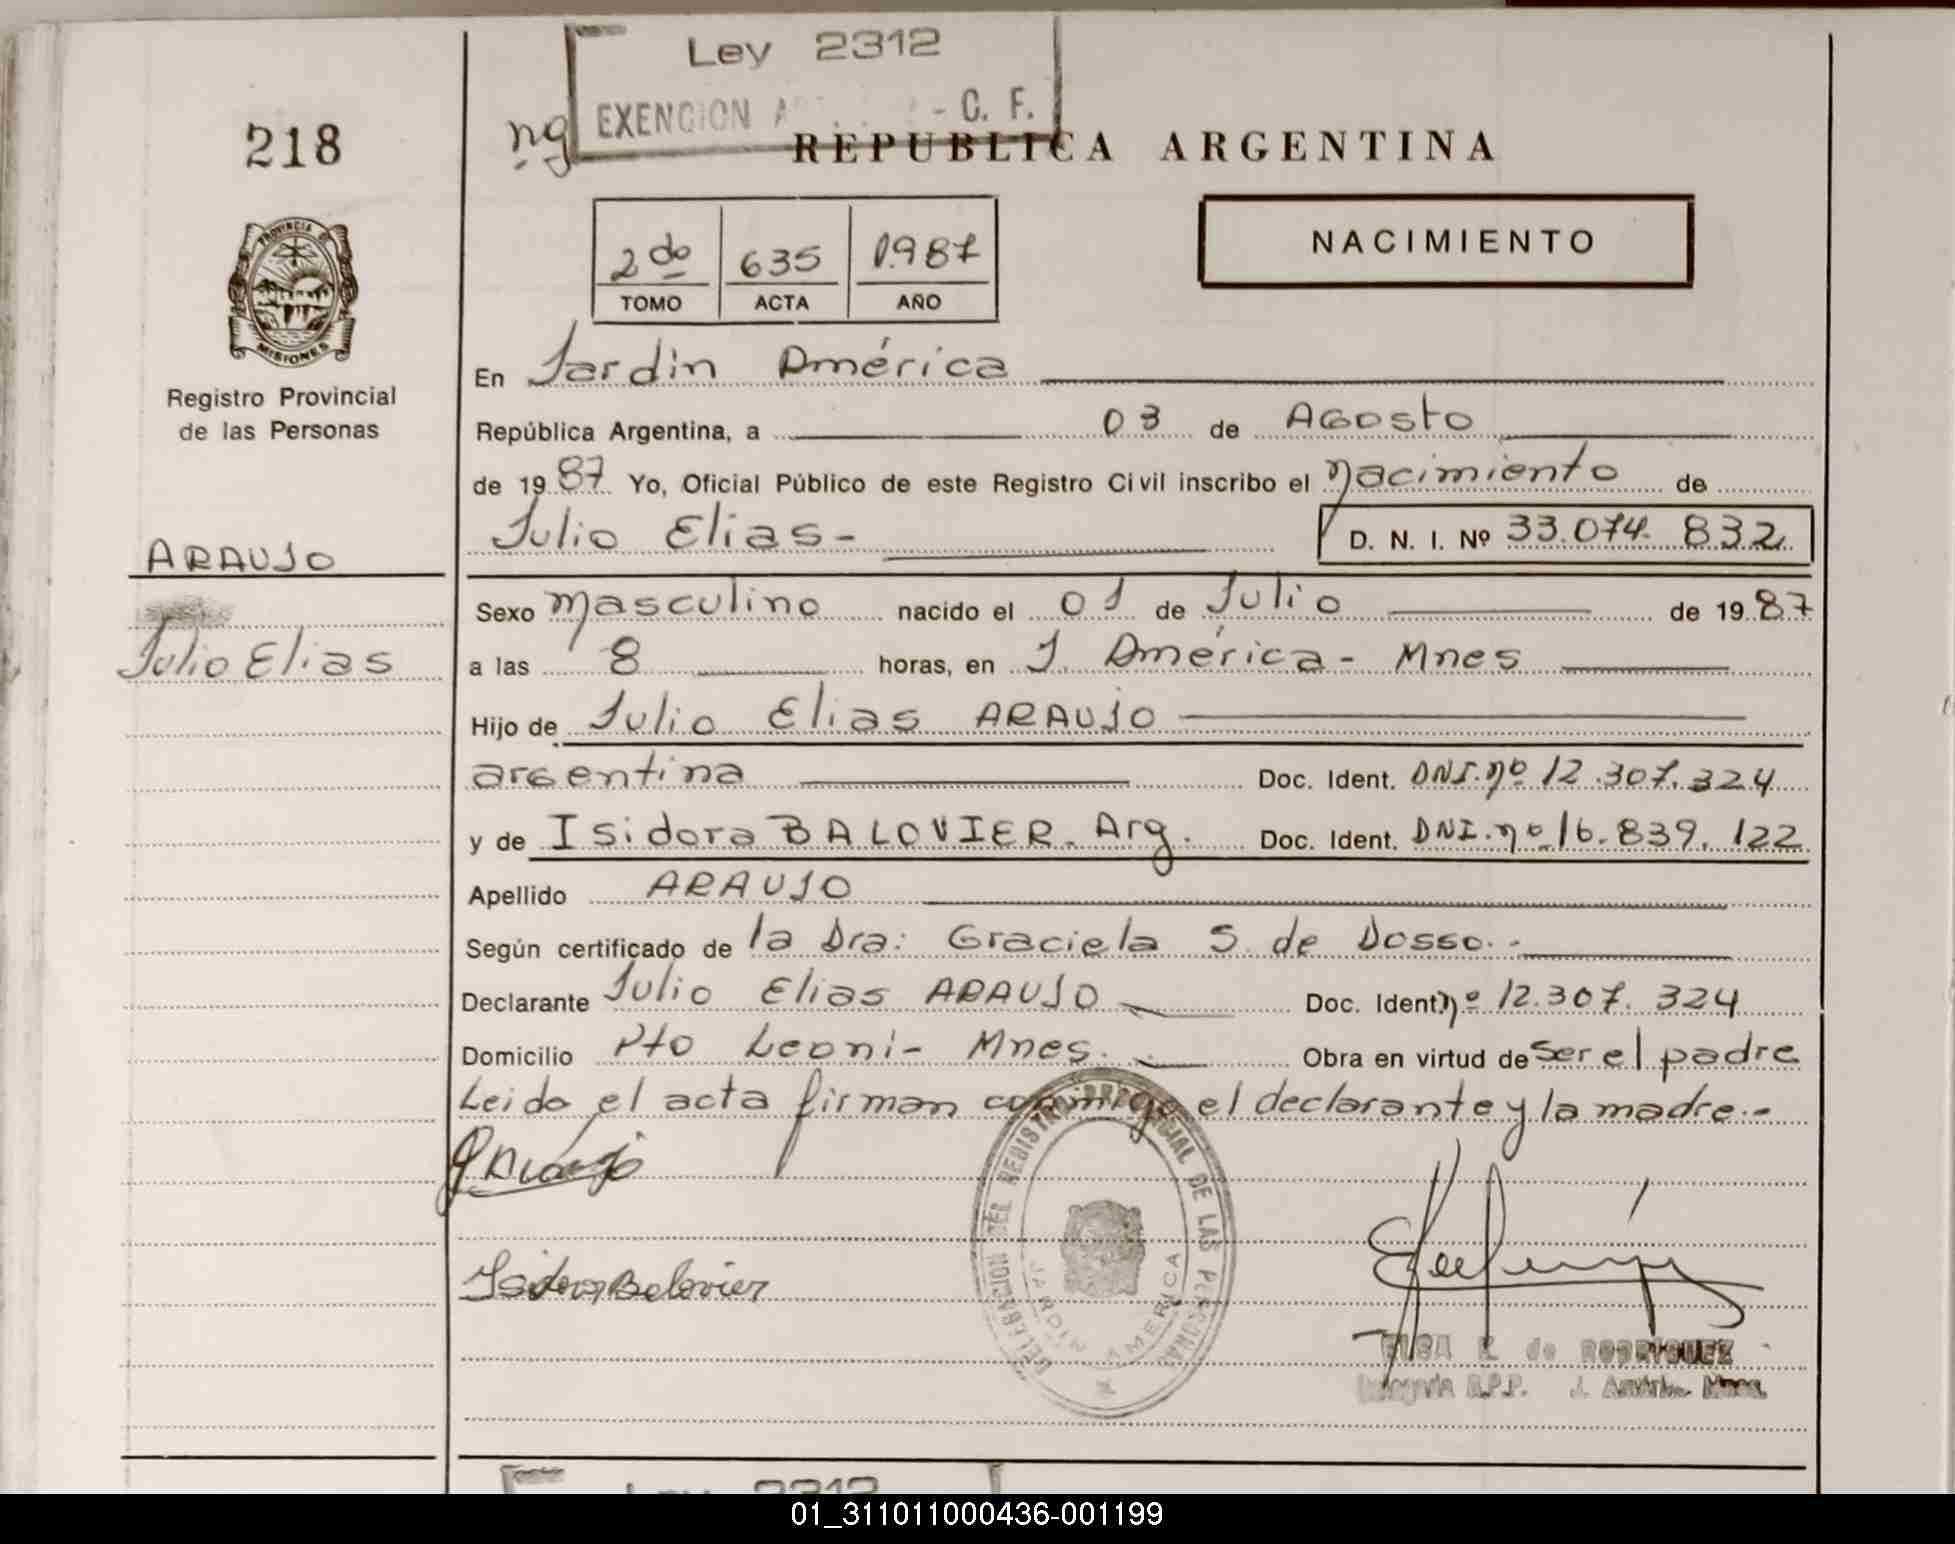 Ley 2312
EXENCION A - C. F.
218
ng
REPUBLICA ARGENTINA
PROVINCIA DE
MISIONES
2do 635 1.987
TOMO ACTA AÑO
NACIMIENTO
Registro Provincial
de las Personas
En Jardin América
República Argentina, a 03 de Agosto
de 1987 Yo, Oficial Público de este Registro Civil inscribo el nacimiento de
Julio Elias- D. N. I. Nº 33.074.832
ARAUJO
Julio Elias
Sexo masculino nacido el 01 de Julio de 1987
a las 8 horas, en J. América - Mnes
Hijo de Julio Elias ARAUJO
argentina Doc. Ident. DNI.nº 12.307.324
y de Isidora BALOVIER. Arg. Doc. Ident. DNI.nº 16.839.122
Apellido ARAUJO
Según certificado de la Dra: Graciela S. de Dosso.-
Declarante Julio Elias ARAUJO Doc. Ident. nº 12.307.324
Domicilio Pto Leoni- Mnes. Obra en virtud de ser el padre
Leida el acta firman conmigo el declarante y la madre.-
Isidora Balovier
DELEGACION DEL REGISTRO PROVINCIAL DE LAS PERSONAS
JARDIN AMERICA
ELSA K. de RODRIGUEZ
Delegada R.P.P. J. América Mnes.
Ley 2312
01_311011000436-001199